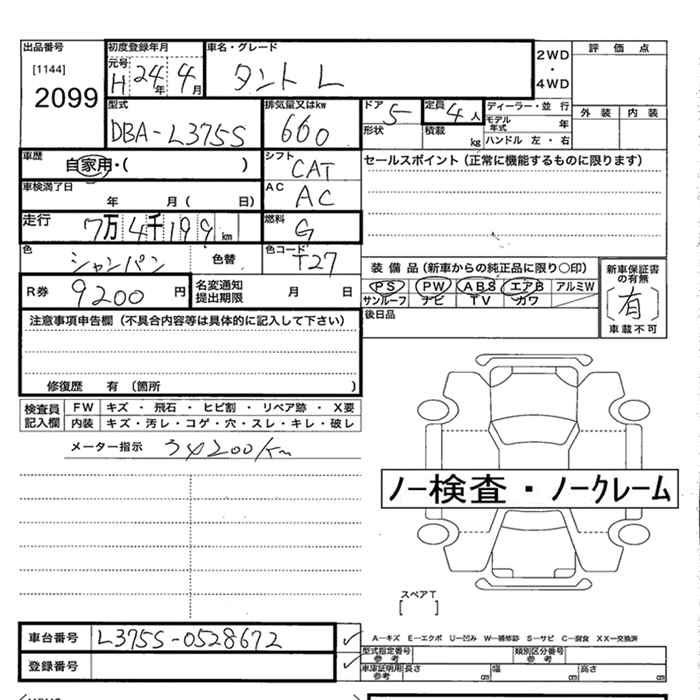 出品番号 初度登録年月 車名・グレード 2WD・4WD 評価点
[1144] 元号 H 24年 4月 タント L
2099
型式 排気量又はkw ドア 定員 ディーラー・並行 外装 内装
DBA-L375S 660 5 4人 モデル年式 年
形状 積載 kg ハンドル 左・右
車歴 自家用・( ) シフト CAT セールスポイント(正常に機能するものに限ります)
車検満了日 年 月( 日) AC AC
走行 7万4千199km 燃料 G
色 シャンパン 色替 色コード T27 装備品(新車からの純正品に限り○印) 新車保証書の有無
R券 9200円 名変通知提出期限 月 日 PS PW ABS エアB アルミW [有]
サンルーフ ナビ TV カワ 車載不可
注意事項申告欄(不具合内容等は具体的に記入して下さい) 後日品
修復歴 有 (箇所 )
検査員記入欄 FW キズ・飛石・ヒビ割・リペア跡・X要
内装 キズ・汚レ・コゲ・穴・スレ・キレ・破レ
メーター指示
ノー検査・ノークレーム
スペアT
[ ]
車台番号 L375S-0528672 A-キズ E-エクボ U-凹み W-補修跡 S-サビ C-腐食 XX-交換済
登録番号 型式指定番号 参考 類別区分番号 参考
車庫証明用参考 長さ cm 幅 cm 高さ cm